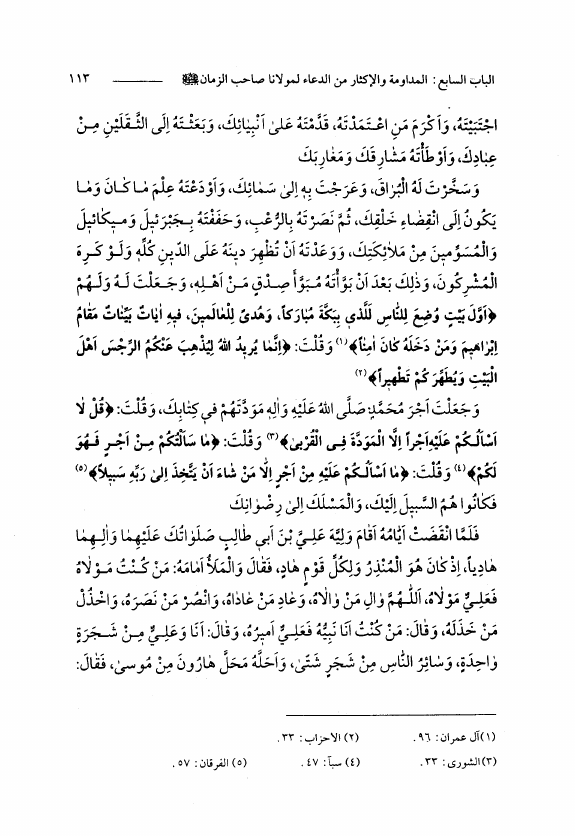 الباب السابع: المداومة والإكثار من الدعاء لمولانا صاحب الزمان ١١٣
اجْتَبَيْتَهُ، وَأَكْرَمَ مَنِ اعْتَمَدْتَهُ، قَدَّمْتَهُ عَلىٰ أَنْبِيٰائِكَ، وَبَعَثْتَهُ إِلَى الثَّقَلَيْنِ مِنْ
عِبٰادِكَ، وَأَوْطَأْتَهُ مَشٰارِقَكَ وَمَغٰارِبَكَ
وَسَخَّرْتَ لَهُ الْبُرٰاقَ، وَعَرَجْتَ بِهِ إِلىٰ سَمٰائِكَ، وَأَوْدَعْتَهُ عِلْمَ مٰا كٰانَ وَمٰا
يَكُونُ إِلَى انْقِضٰاءِ خَلْقِكَ، ثُمَّ نَصَرْتَهُ بِالرُّعْبِ، وَحَفَفْتَهُ بِجَبْرَئيلَ وَميكٰائيلَ
وَالْمُسَوِّمينَ مِنْ مَلاٰئِكَتِكَ، وَوَعَدْتَهُ أَنْ تُظْهِرَ دينَهُ عَلَى الدّينِ كُلِّهِ وَلَوْ كَرِهَ
الْمُشْرِكُونَ، وَذٰلِكَ بَعْدَ أَنْ بَوَّأْتَهُ مُبَوَّأَ صِدْقٍ مِنْ أَهْلِهِ، وَجَعَلْتَ لَهُ وَلَهُمْ
﴿أَوَّلَ بَيْتٍ وُضِعَ لِلنّٰاسِ لَلَّذي بِبَكَّةَ مُبٰارَكاً، وَهُدىً لِلْعٰالَمينَ، فيهِ اٰيٰاتٌ بَيِّنٰاتٌ مَقٰامُ
إِبْرٰاهيمَ وَمَنْ دَخَلَهُ كٰانَ اٰمِناً﴾(١) وَقُلْتَ: ﴿إِنَّمٰا يُريدُ اللهُ لِيُذْهِبَ عَنْكُمُ الرِّجْسَ أَهْلَ
الْبَيْتِ وَيُطَهِّرَكُمْ تَطْهيراً﴾(٢)
وَجَعَلْتَ أَجْرَ مُحَمَّدٍ صَلَّى اللهُ عَلَيْهِ وَاٰلِهِ مَوَدَّتَهُمْ في كِتٰابِكَ، وَقُلْتَ: ﴿قُلْ لاٰ
أَسْأَلُكُمْ عَلَيْهِ أَجْراً إِلَّا الْمَوَدَّةَ فِي الْقُرْبىٰ﴾(٣) وَقُلْتَ: ﴿مٰا سَأَلْتُكُمْ مِنْ أَجْرٍ فَهُوَ
لَكُمْ﴾(٤) وَقُلْتَ: ﴿مٰا أَسْأَلُكُمْ عَلَيْهِ مِنْ أَجْرٍ إِلّٰا مَنْ شٰاءَ أَنْ يَتَّخِذَ إِلىٰ رَبِّهِ سَبيلاً﴾(٥)
فَكٰانُوا هُمُ السَّبيلَ إِلَيْكَ، وَالْمَسْلَكَ إِلىٰ رِضْوٰانِكَ
فَلَمَّا انْقَضَتْ أَيّٰامُهُ أَقٰامَ وَلِيَّهُ عَلِيَّ بْنَ أَبي طٰالِبٍ صَلَوٰاتُكَ عَلَيْهِمٰا وَاٰلِهِمٰا
هٰادِياً، إِذْ كٰانَ هُوَ الْمُنْذِرُ وَلِكُلِّ قَوْمٍ هٰادٍ، فَقٰالَ وَالْمَلَأُ أَمٰامَهُ: مَنْ كُنْتُ مَوْلاٰهُ
فَعَلِيٌّ مَوْلاٰهُ، اَللّٰهُمَّ وٰالِ مَنْ وٰالاٰهُ، وَعٰادِ مَنْ عٰادٰاهُ، وَانْصُرْ مَنْ نَصَرَهُ، وَاخْذُلْ
مَنْ خَذَلَهُ، وَقٰالَ: مَنْ كُنْتُ أَنَا نَبِيَّهُ فَعَلِيٌّ أَميرُهُ، وَقٰالَ: أَنَا وَعَلِيٌّ مِنْ شَجَرَةٍ
وٰاحِدَةٍ، وَسٰائِرُ النّٰاسِ مِنْ شَجَرٍ شَتّىٰ، وَأَحَلَّهُ مَحَلَّ هٰارُونَ مِنْ مُوسىٰ، فَقٰالَ:
(١) آل عمران: ٩٦. (٢) الاحزاب: ٣٣.
(٣) الشورى: ٢٣. (٤) سبأ: ٤٧. (٥) الفرقان: ٥٧.